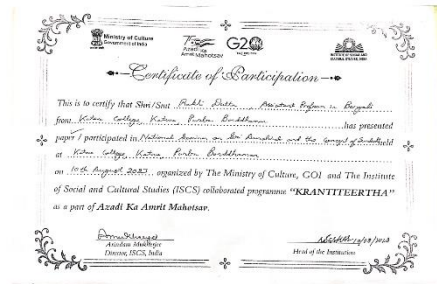 Ministry of Culture
Government of India
Azadi Ka
Amrit Mahotsav
G20
Certificate of Participation
This is to certify that Shri/Smt Pinki Dutta, Assistant Professor in Bengali
from Katwa College, Katwa, Purba Bardhaman has presented
paper / participated in National Seminar on Sri Aurobindo and the Concept of held
at Katwa College, Katwa, Purba Bardhaman
on 10th August 2023, organized by The Ministry of Culture, GOI and The Institute
of Social and Cultural Studies (ISCS) collaborated programme "KRANTITEERTHA"
as a part of Azadi Ka Amrit Mahotsav.
Arindam Mukherjee
Director, ISCS, India
10/08/2023
Head of the Institution